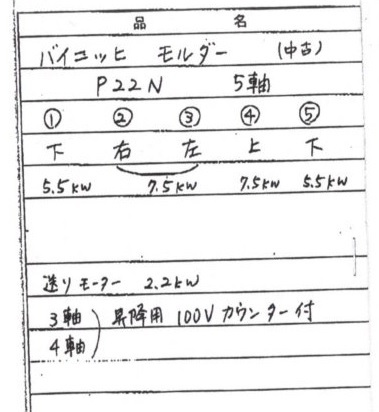 品 名
バイコッヒ モルダー (中古)
P22N 5軸
① ② ③ ④ ⑤
下 右 左 上 下
5.5kW 7.5kW 7.5kW 5.5kW
送りモーター 2.2kW
3軸 昇降用 100V カウンター付
4軸